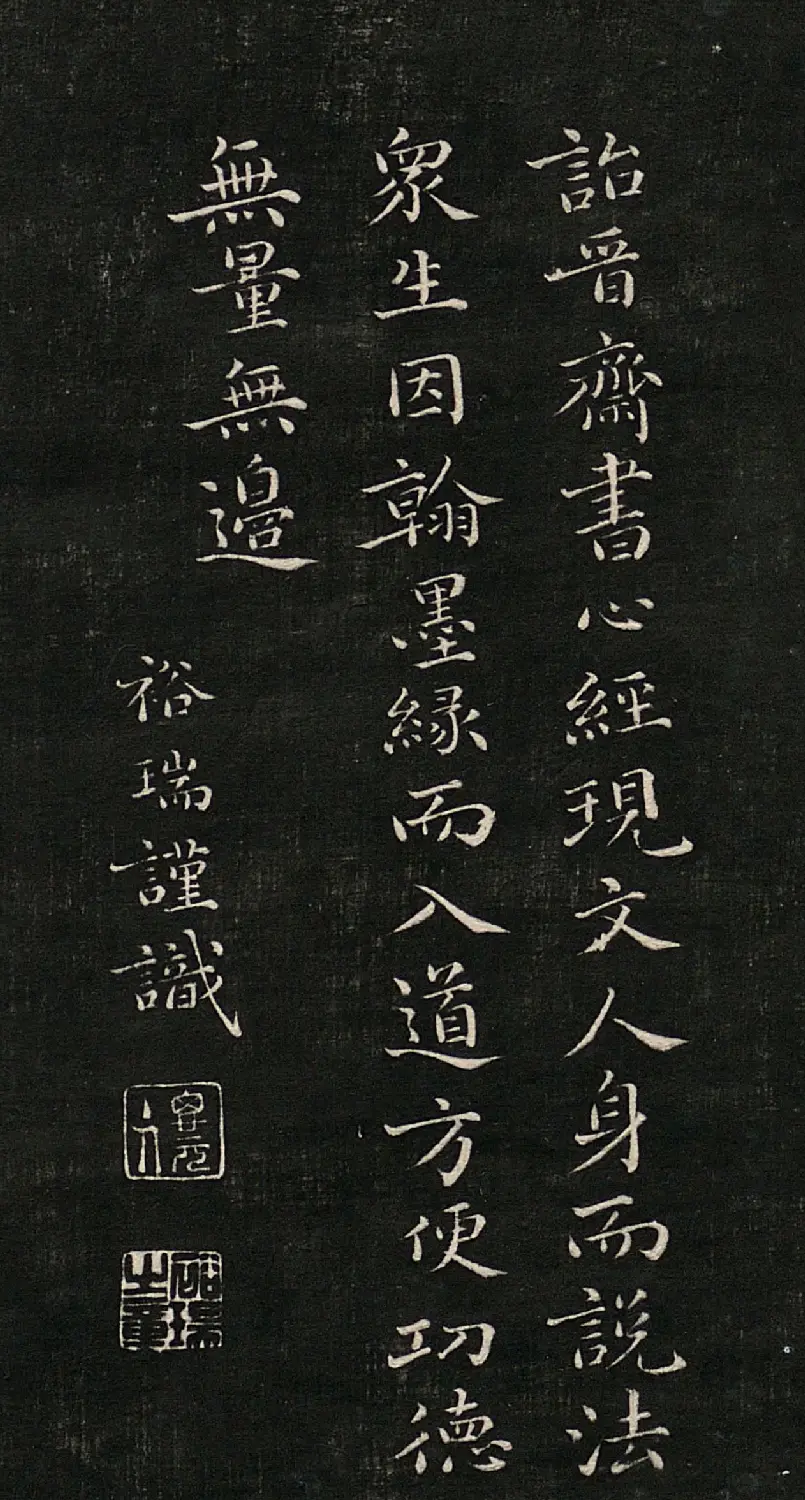 詒晉齋書心經現文人身而說法
眾生因翰墨緣而入道方便功德
無量無邊
裕瑞謹識
裕瑞之章